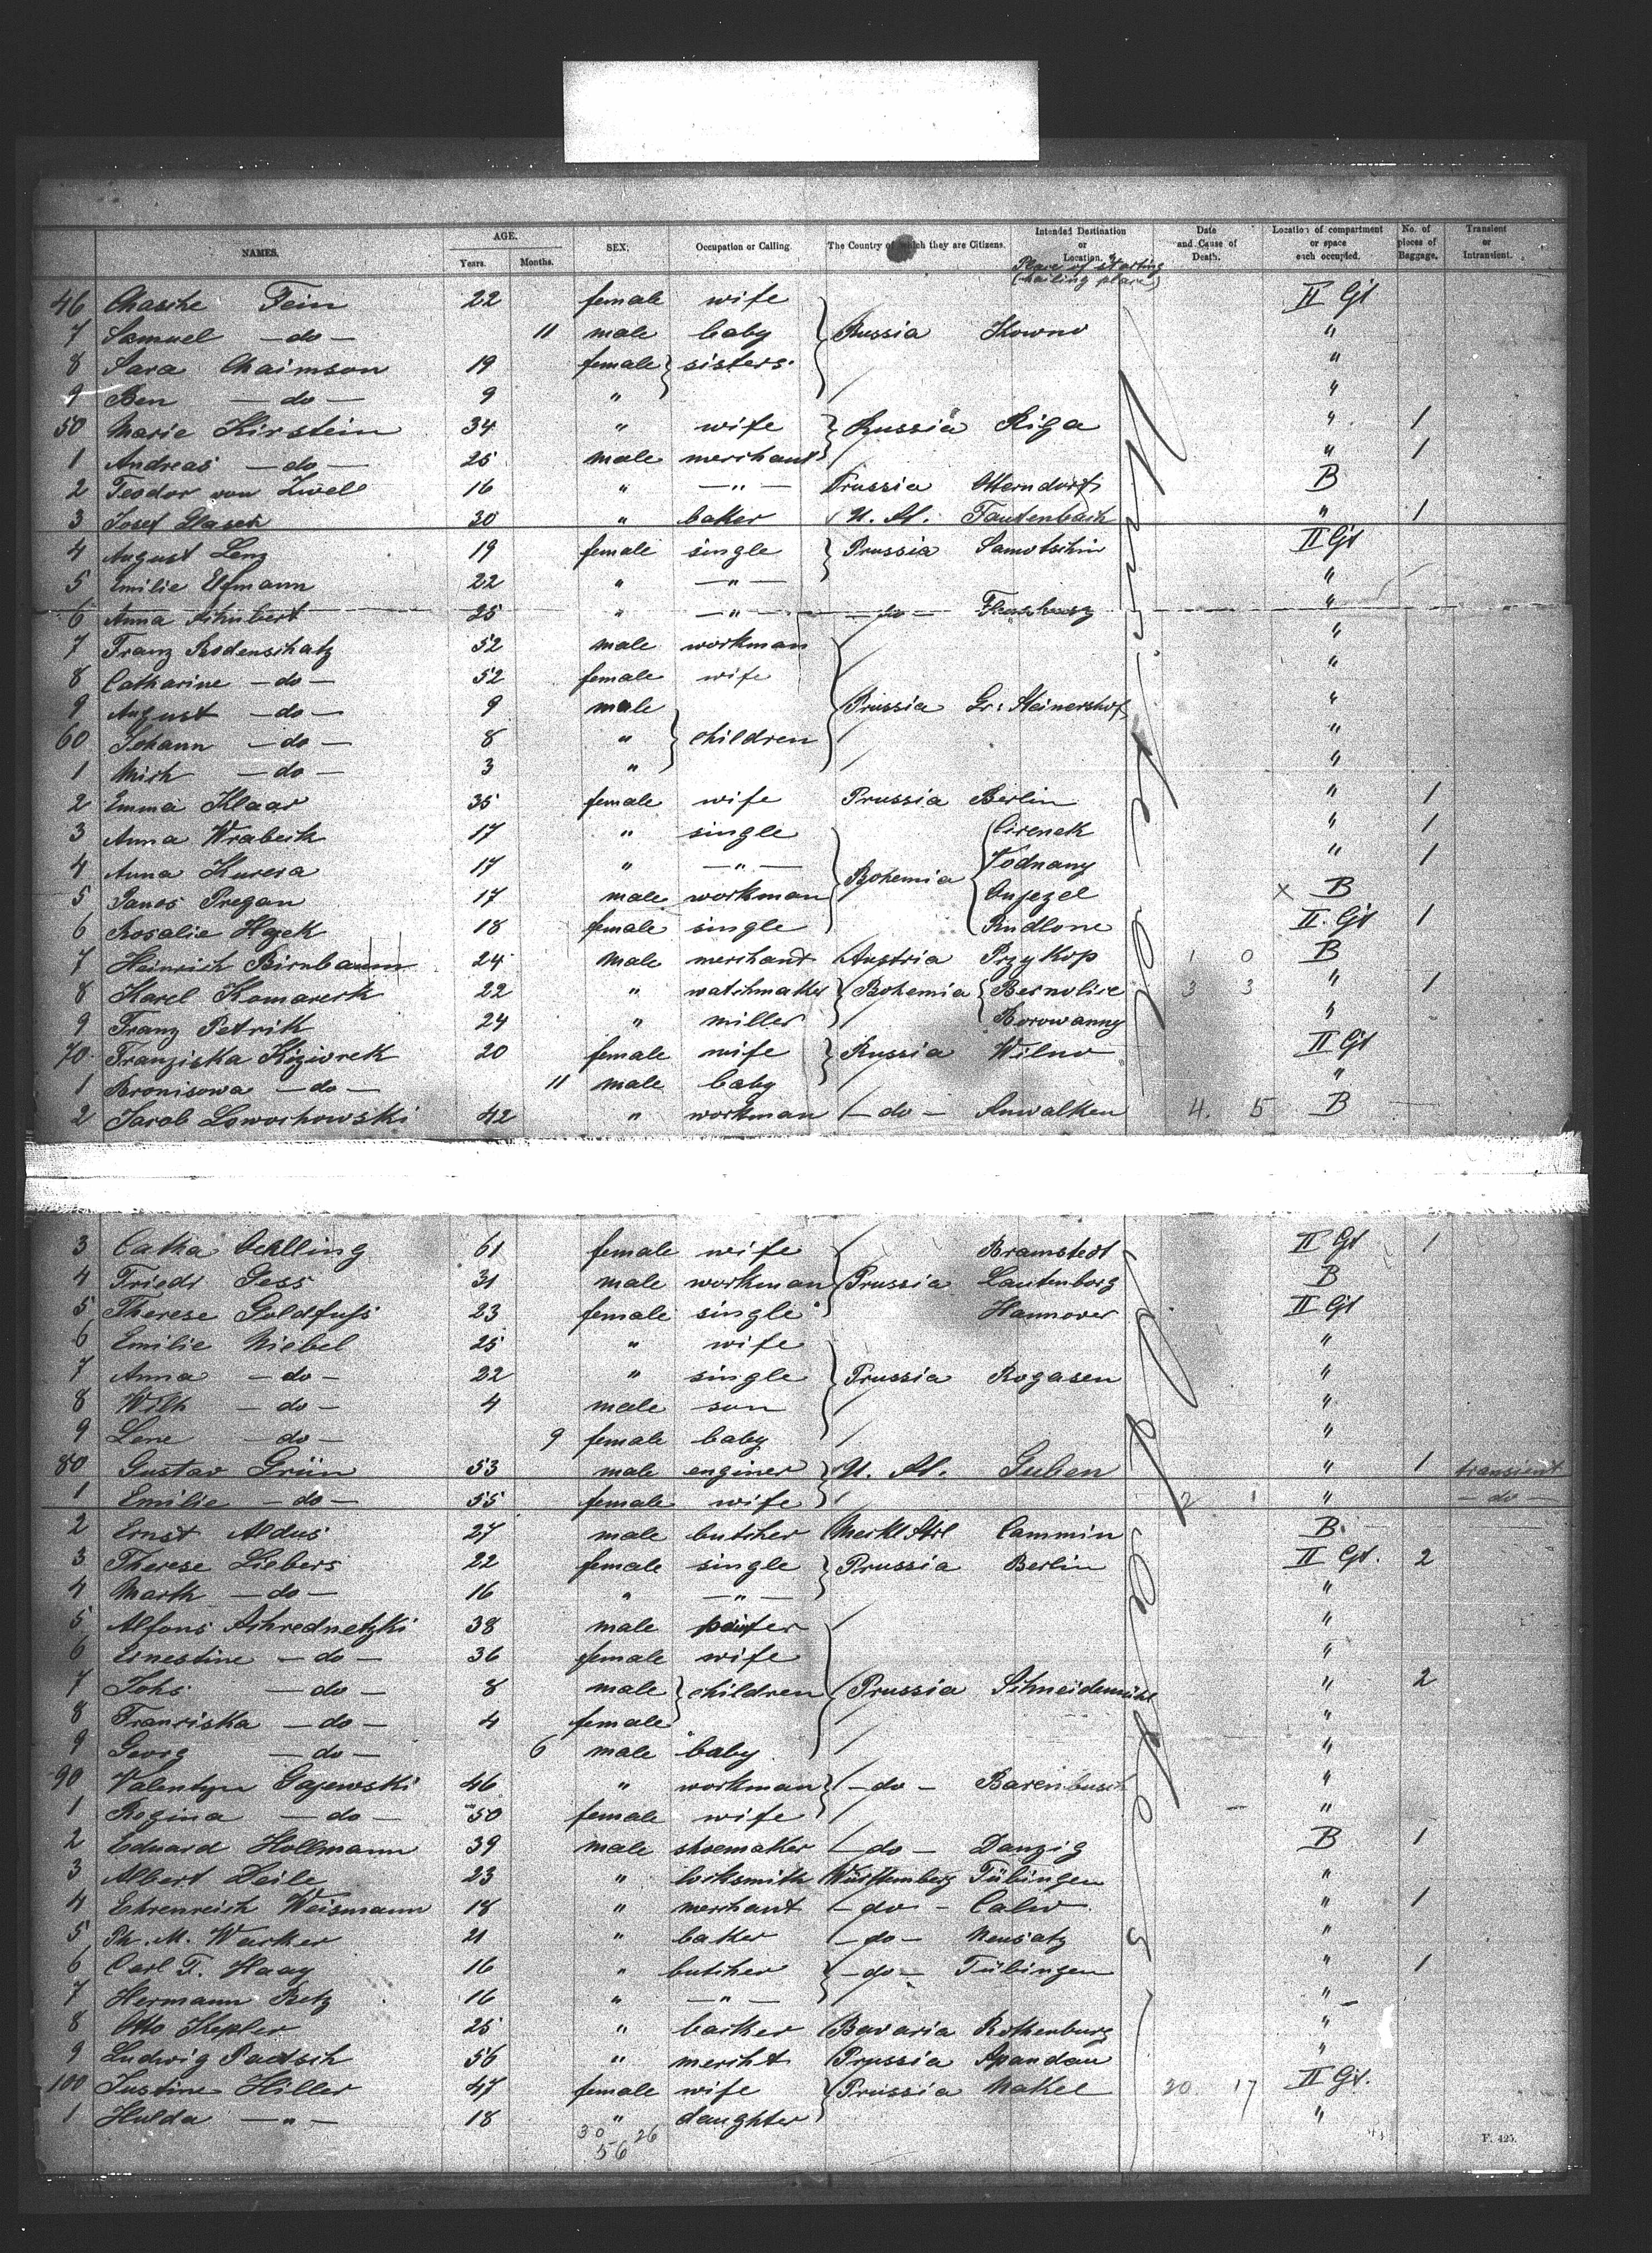 NAMES. AGE. Years. Months. SEX. Occupation or Calling. The Country of which they are Citizens. Intended Destination or Location. Date and Cause of Death. Location of compartment or space each occupied. No. of pieces of Baggage. Transient or Intransient.
Place of starting
(hailing place)
46 Chasche Fein 22 female wife II Gt
7 Samuel — do — 11 male baby Russia Kowno "
8 Sara Chaimson 19 female sisters "
9 Ben — do — 9 " "
50 Marie Kirstein 34 " wife Russia Riga " 1
1 Andreas — do — 25 male merchant " 1
2 Teodor von Zwell 16 " — " — Prussia Otterndorf B
3 Josef Glasek 30 " baker U. St. Fautenbach " 1
4 August Lenz 19 female single Prussia Samotschin II Gt
5 Emilie Elfmann 22 " — " — "
6 Anna Schubert 25 " — " — — do — "
7 Franz Rodenschatz 52 male workman "
8 Catharine — do — 52 female wife "
9 August — do — 9 male Prussia Gr. Steinershof "
60 Johann — do — 8 " children "
1 Mich — do — 3 " "
2 Emma Klaar 35 female wife Prussia Berlin " 1
3 Anna Wrabeck 17 " single Cirenek " 1
4 Anna Kurera 17 " — " — Bohemia Vodnany " 1
5 Janos Pregan 17 male workman x B
6 Rosalie Hajek 18 female single Rudlone II. Gt 1
7 Heinrich Birnbaum 24 male merchant Austria Przykop 1 0 B
8 Karel Komareck 22 " watchmaker Bohemia Bernolice 3 3 " 1
9 Franz Petrik 24 " miller Borowanny "
70 Franziska Kiziorek 20 female wife Russia Wilno II Gt
1 Bronisowa — do — 11 male baby "
2 Jacob Loworhowski 42 " workman — do — Suwalken 4. 5 B —
3 Catha Oehlling 61 female wife Bramstedt II Gt 1
4 Friedr Gess 31 male workman Prussia Lautenborg B
5 Therese Goldfuß 23 female single Hannover II Gt
6 Emilie Niebel 25 " wife "
7 Anna — do — 22 " single Prussia Rogasen "
8 Wilh — do — 4 male son "
9 Lene — do — 9 female baby "
80 Gustav Grün 53 male enginer U. St. Guben " 1 transient
1 Emilie — do — 55 female wife 2 1 " — do —
2 Ernst Aldus 27 male butcher Meckl Strl Cammin B.
3 Therese Liebers 22 female single Prussia Berlin II Gt. 2
4 Marth — do — 16 " — " — "
5 Alfons Schrednetzki 38 male "
6 Ernestine — do — 36 female wife "
7 Johs — do — 8 male children Prussia Schneidemühl " 2
8 Franriska — do — 4 female "
9 Georg — do — 6 male baby "
90 Valentyn Gajewski 46 " workman — do — Barenbusch "
1 Regina — do — 50 female wife — "
2 Eduard Hollmann 39 male shoemaker — do — Danzig B 1
3 Albert Zeile 23 " locksmith Württemberg Tübingen "
4 Ehrenreich Weismann 18 " merchant — do — Calw " 1
5 Ph. M. Warker 21 " baker — do — Neusatz "
6 Carl F. Haag 16 " butcher — do — Tübingen " 1
7 Hermann Retz 16 " — " — "
8 Otto Kepler 25 " backer Bavaria Rothenburg "
9 Ludwig Padsch 56 " mercht Prussia Spandau "
100 Justine Hiller 47 female wife Prussia Nakel 20 17 II Gt.
1 Hulda — " — 18 " daughter "
30 26
56
F. 425.